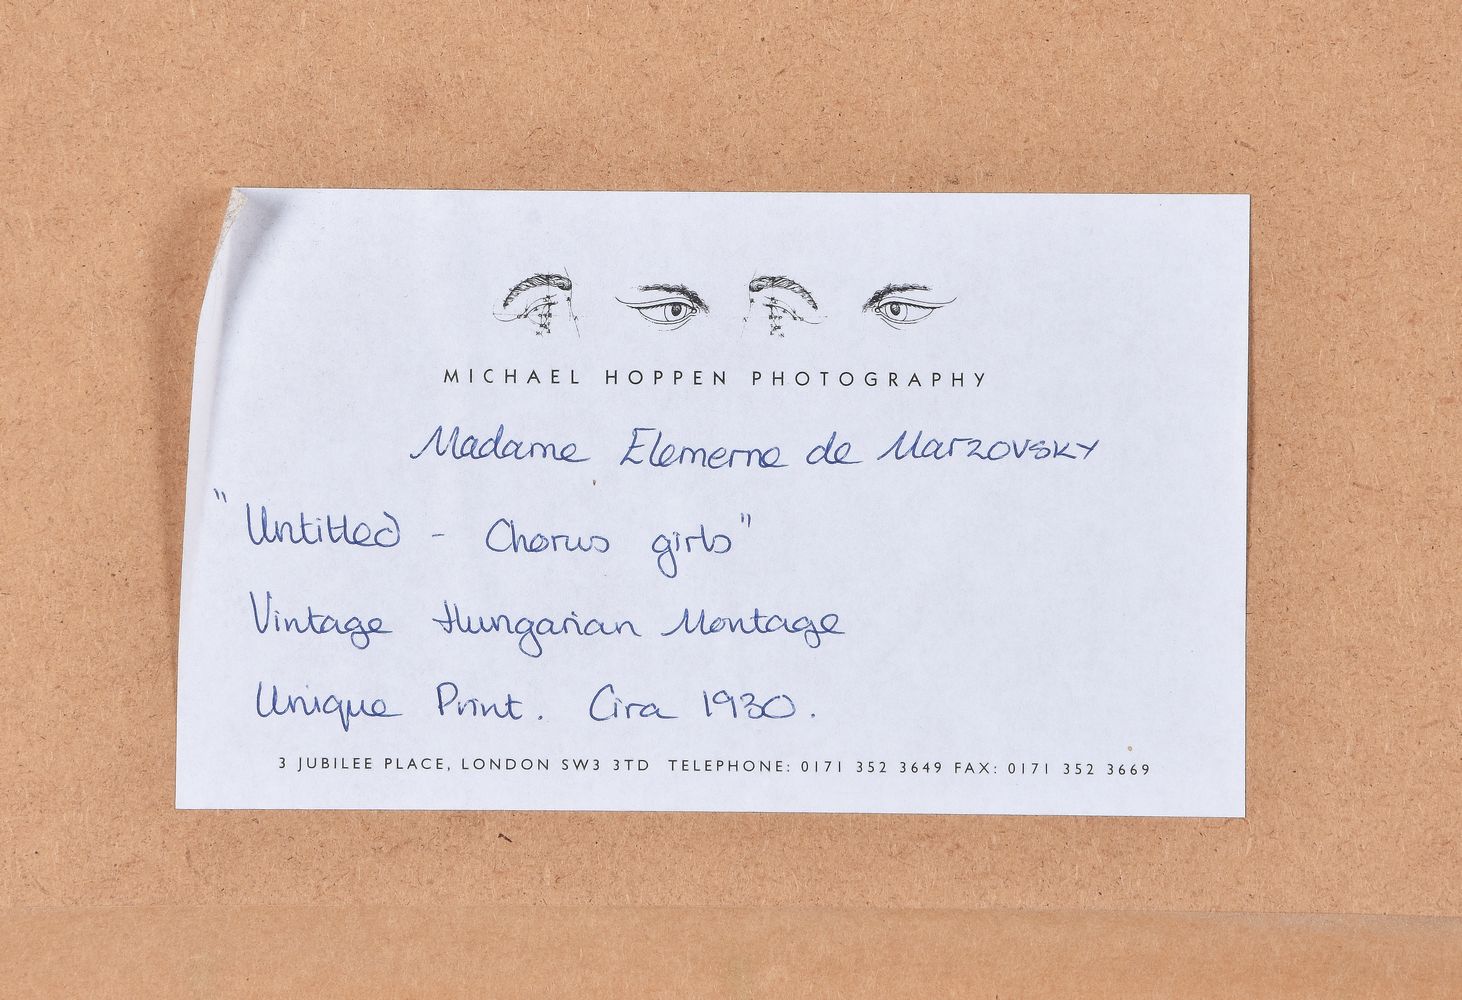 MICHAEL HOPPEN PHOTOGRAPHY
Madame Elemerne de Marzovsky
"Untitled - Chorus girls"
Vintage Hungarian Montage
Unique Print. Cira 1930.
3 JUBILEE PLACE, LONDON SW3 3TD TELEPHONE: 0171 352 3649 FAX: 0171 352 3669